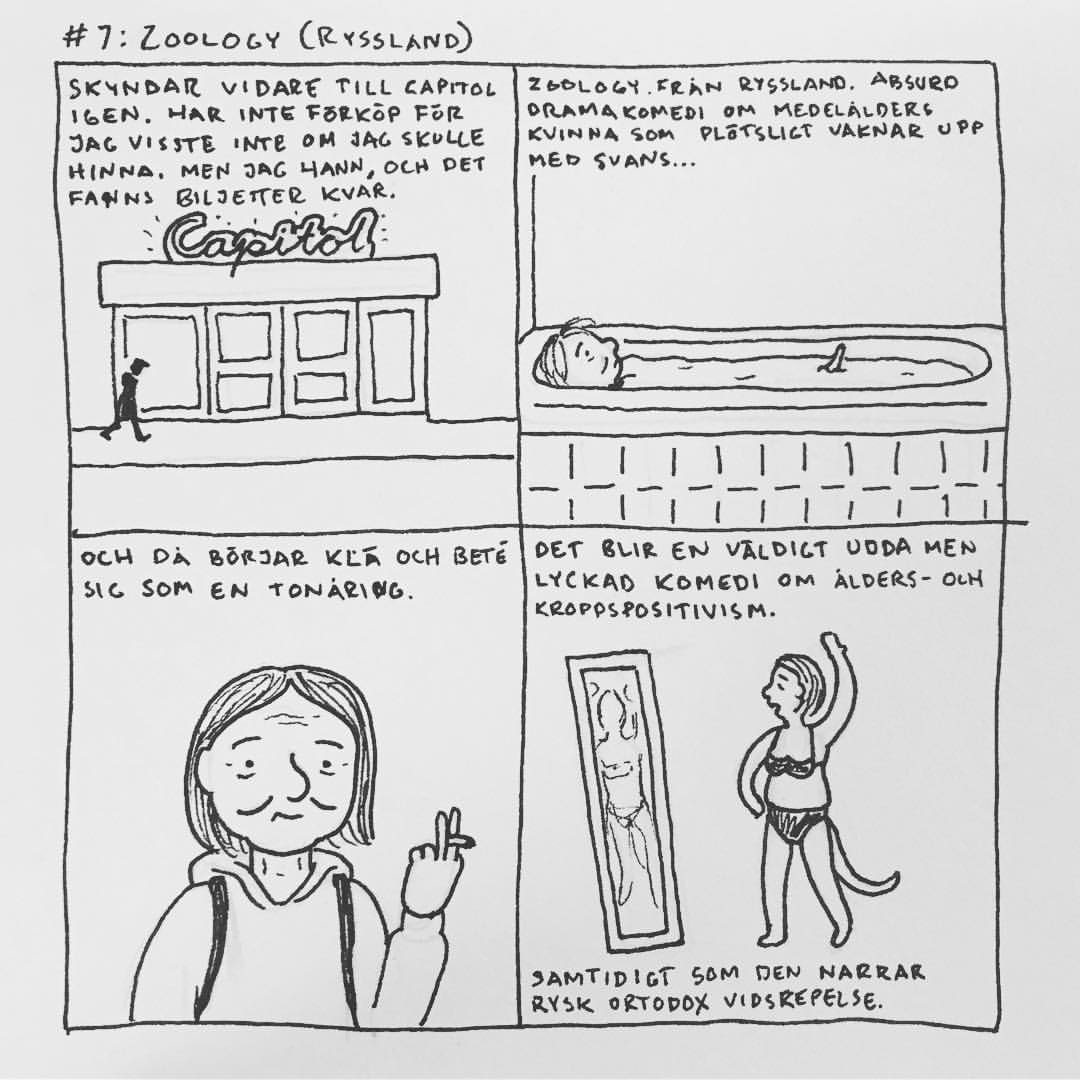 #7: ZOOLOGY (RYSSLAND)
SKYNDAR VIDARE TILL CAPITOL
IGEN. HAR INTE FÖRKÖP FÖR
JAG VISSTE INTE OM JAG SKULLE
HINNA. MEN JAG HANN, OCH DET
FANNS BILJETTER KVAR.
Capitol
ZOOLOGY. FRÅN RYSSLAND. ABSURD
DRAMAKOMEDI OM MEDELÅLDERS
KVINNA SOM PLÖTSLIGT VAKNAR UPP
MED SVANS...
OCH DÅ BÖRJAR KLÄ OCH BETE
SIG SOM EN TONÅRING.
DET BLIR EN VÄLDIGT UDDA MEN
LYCKAD KOMEDI OM ÅLDERS- OCH
KROPPSPOSITIVISM.
SAMTIDIGT SOM DEN NARRAR
RYSK ORTODOX VIDSREPELSE.